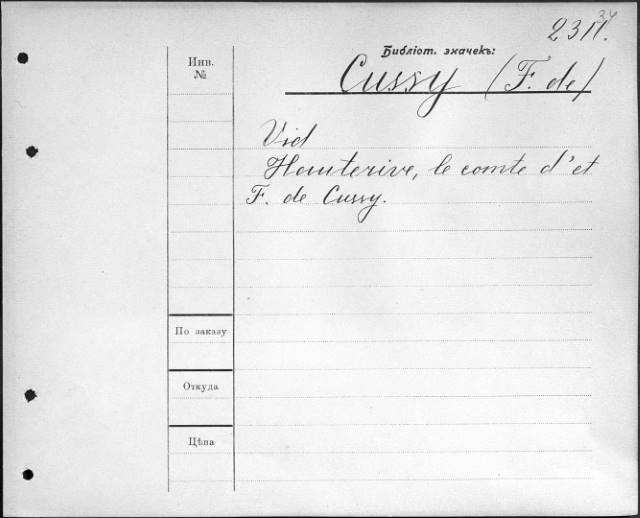 34
2311.
Библіот. значекъ:
Инв.
№
Cussy (F. de)
Vid
Hauterive, le comte d'et
F. de Cussy.
По заказу
Откуда
Цѣна